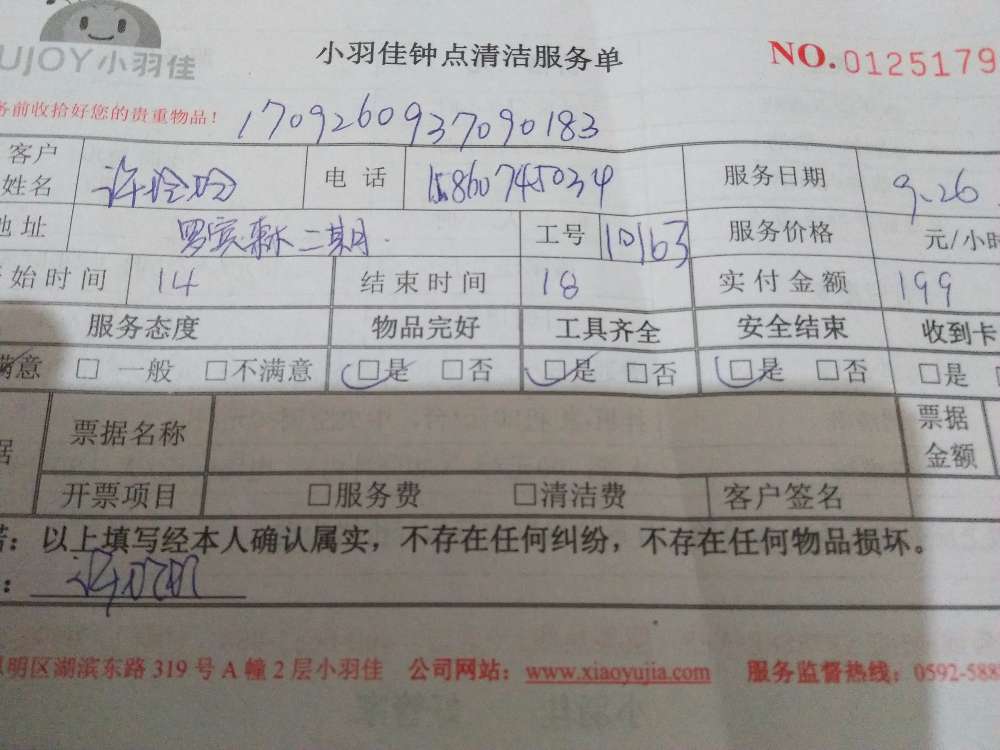 UJOY小羽佳
小羽佳钟点清洁服务单
NO.0125179
务前收拾好您的贵重物品！
170926093709 0183
客户姓名 许玲玲 电话 15860745034 服务日期 9.26
地址 罗宾森二期 工号 10163 服务价格 元/小时
始时间 14 结束时间 18 实付金额 199
服务态度 物品完好 工具齐全 安全结束 收到卡
满意 □ 一般 □不满意 □是 □否 □是 □否 □是 □否 □是
据 票据名称 票据金额
开票项目 □服务费 □清洁费 客户签名
诺：以上填写经本人确认属实，不存在任何纠纷，不存在任何物品损坏。
：
明区湖滨东路 319 号 A 幢 2 层小羽佳 公司网站：www.xiaoyujia.com 服务监督热线：0592-588